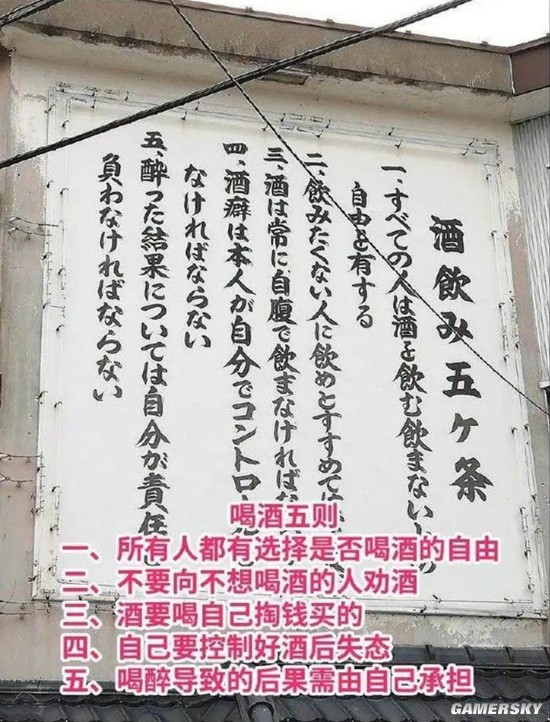 酒飲み五ケ条
一、すべての人は酒を飲む飲まない
自由を有する
二、飲みたくない人に飲めとすすめて
三、酒は常に自腹で飲まなければ
四、酒癖は本人が自分でコントロー
なければならない
五、酔った結果については自分が責任
負わなければならない
喝酒五则
一、所有人都有选择是否喝酒的自由
二、不要向不想喝酒的人劝酒
三、酒要喝自己掏钱买的
四、自己要控制好酒后失态
五、喝醉导致的后果需由自己承担
GAMERSKY